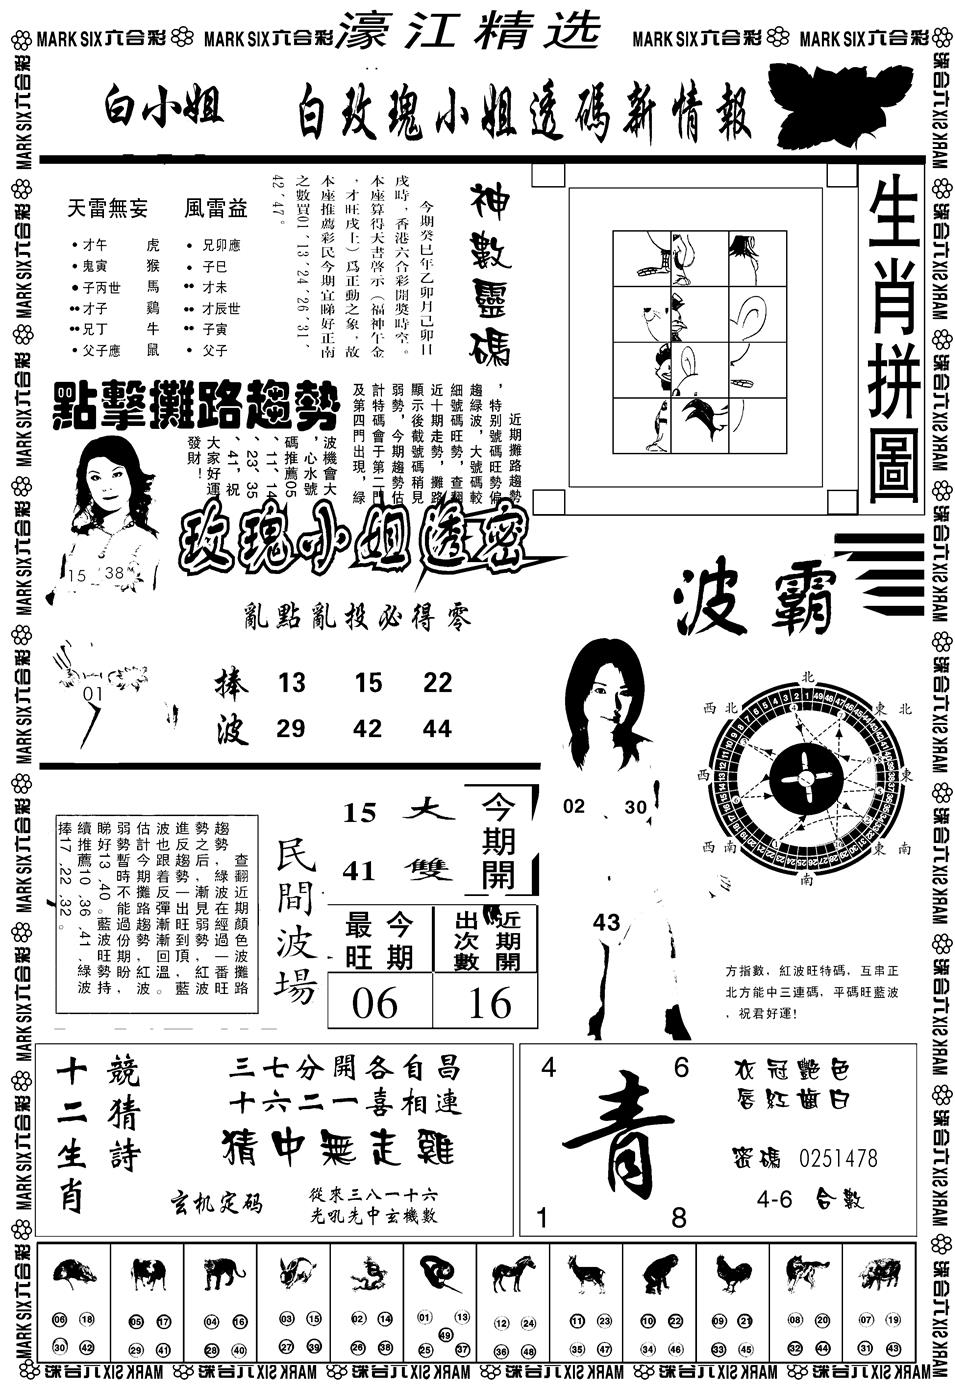 MARK SIX六合彩 MARK SIX六合彩 濠江精选 MARK SIX六合彩 MARK SIX六合彩
白小姐 白玫瑰小姐透碼新情報
天雷無妄 風雷益
•才午 虎 •兄卯應
•鬼寅 猴 •子巳
•子丙世 馬 ••才未
••才子 鷄 ••才辰世
••兄丁 牛 ••子寅
•父子應 鼠 •父子
神數靈碼
今期癸巳年乙卯月己卯日
戌時，香港六合彩開獎時空。
本座算得天書啓示（福神午金
，才旺戌土）爲正動之象，故
本座推薦彩民今期宜睇好正南
之數買01、13、24、26、31、
42、47。
生肖拼圖
點擊攤路趨勢
近期攤路趨勢
，特别號碼旺勢偏
趨緑波，大號碼較
細號碼旺勢，查翻
近十期走勢，攤路
顯示後截號碼稍見
弱勢，今期趨勢估
計特碼會于第二門
及第四門出現，緑
波機會大
，心水號
碼推薦05
、11、14
、23、35
、41，祝
大家好運
發財！
15 38
01
玫瑰小姐透密
亂點亂投必得零
捧 13 15 22
波 29 42 44
波霸
02 30
43
北
西北 東北
西 東
西南 東南
南
方指數，紅波旺特碼，互串正
北方能中三連碼，平碼旺藍波
，祝君好運！
查翻近期顏色波攤路
趨勢，緑波在經過一番旺
勢之后，漸見弱勢，紅波
進反趨勢一出旺到頂，藍
波也跟着反彈漸漸回溫。
估計今期攤路趨勢紅波
弱勢暫時不能過份期盼，
睇好13、40。藍波旺勢持
續推薦10、36、41、緑波
捧17、22、32。
民間波場
15 大
41 雙
今期開
最旺 今期
出次數 近期開
06 16
十二生肖
競猜詩
三七分開各自昌
十六二一喜相連
猜中無走雞
玄机定码
從來三八一十六
光吼先中玄機數
4 6
青
1 8
衣冠艷色
唇紅齒白
密碼 0251478
4-6 合數
06 18 30 42
05 17 29 41
04 16 28 40
03 15 27 39
02 14 26 38
01 13 49 25 37
12 24 36 48
11 23 35 47
10 22 34 46
09 21 33 45
08 20 32 44
07 19 31 43